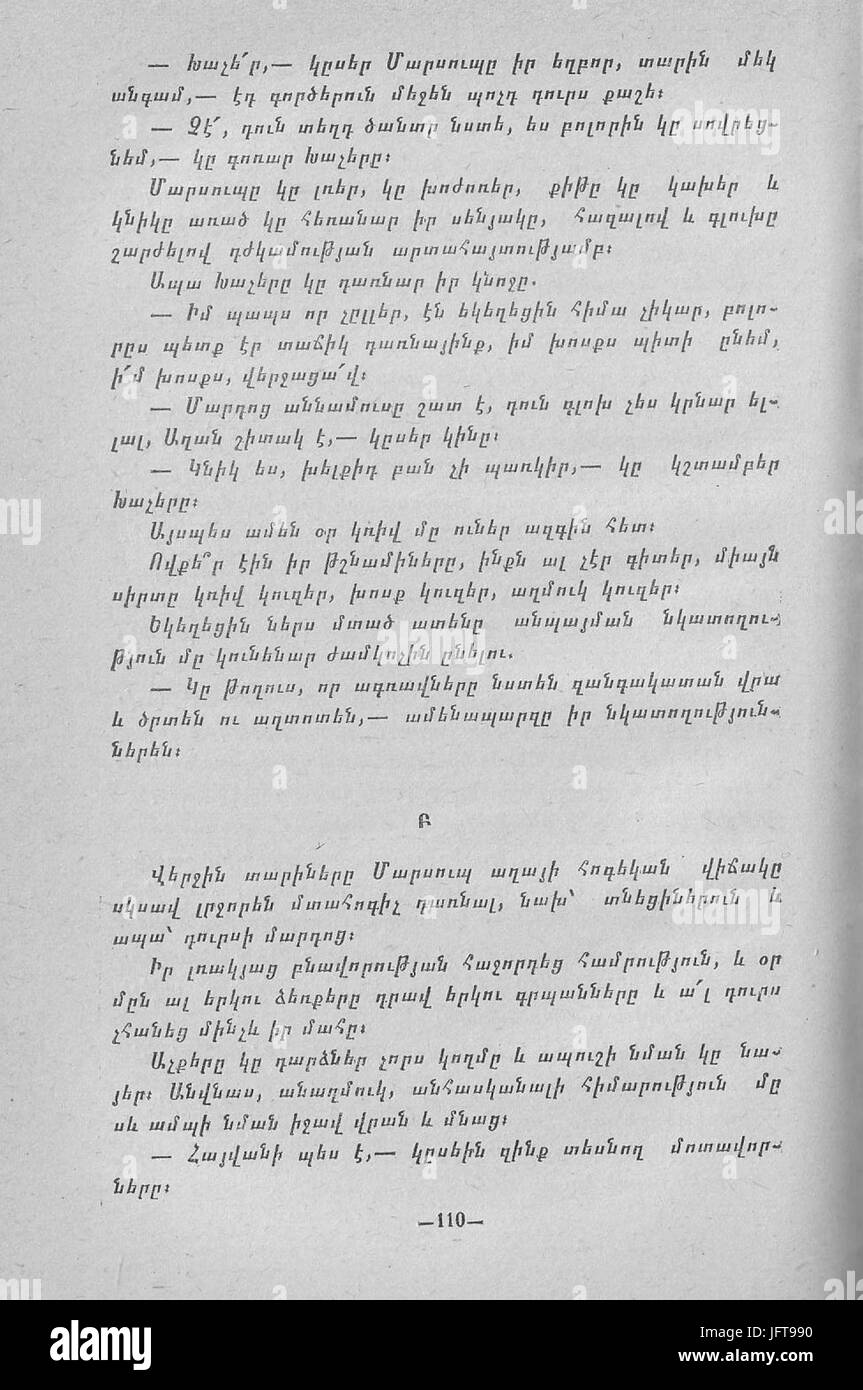 — Խաչե՛ր,— կըսեր Մարսուպը իր եղբոր, տարին մեկ
անգամ,— էդ գործերուն մեջեն պոչդ դուրս քաշե։
— Չէ՛, դուն տեղդ ծանտր նստե, ես բոլորին կը սովրեց-
նեմ,— կը գոռար Խաչերը։
Մարսուպը կը լռեր, կը խոժոռեր, քիթը կը կախեր և
կնիկը առած կը հեռանար իր սենյակը, հազալով և գլուխը
շարժելով դժկամության արտահայտությամբ։
Ապա Խաչերը կը դառնար իր կնոջը.
— Իմ պապս որ չըլլեր, էն եկեղեցին հիմա չիկար, բոլո-
րըս պետք էր տաճիկ դառնայինք, իմ խոսքս պիտի ընեմ,
ի՛մ խոսքս, վերջացա՛վ։
— Մարդոց աննամուսը շատ է, դուն գլոխ չես կրնար ել-
լալ, Աղան շիտակ է,— կըսեր կինը։
— Կնիկ ես, խելքիդ բան չի պառկիր,— կը կշտամբեր
Խաչերը։
Այսպես ամեն օր կռիվ մը ուներ ազգին հետ։
Ովքե՞ր էին իր թշնամիները, ինքն ալ չէր գիտեր, միայն
սիրտը կռիվ կուզեր, խոսք կուզեր, աղմուկ կուզեր։
Եկեղեցին ներս մտած ատենը անպայման նկատողու-
թյուն մը կունենար ժամկոչին ընելու.
— Կը թողուս, որ ագռավները նստեն զանգակատան վրա
և ծրտեն ու աղտոտեն,— ամենապարզը իր նկատողություն-
ներեն։
Բ
Վերջին տարիները Մարսուպ աղայի հոգեկան վիճակը
սկսավ լրջորեն մտահոգիչ դառնալ, նախ՝ տնեցիներուն և
ապա՝ դուրսի մարդոց։
Իր լռակյաց բնավորության հաջորդեց համրություն, և օր
մըն ալ երկու ձեռքերը դրավ երկու գրպանները և ա՛լ դուրս
չհանեց մինչև իր մահը։
Աչքերը կը դարձներ չորս կողմը և ապուշի նման կը նա-
յեր։ Անվնաս, անաղմուկ, անհասկանալի հիմարություն մը
սև ամպի նման իջավ վրան և մնաց։
— Հայվանի պես է,— կըսեին զինք տեսնող մոտավոր-
ները։
—110—
alamy stock photo
JFT990
www.alamy.com